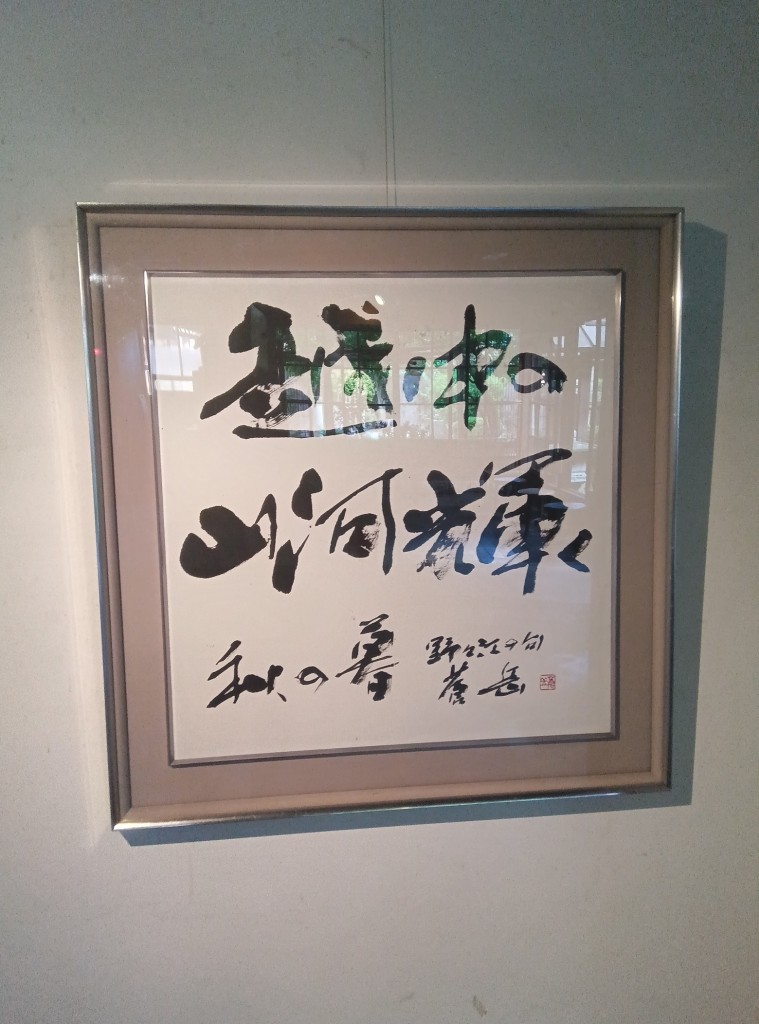 越中の
山河輝く
秋の暮
野の句
岳